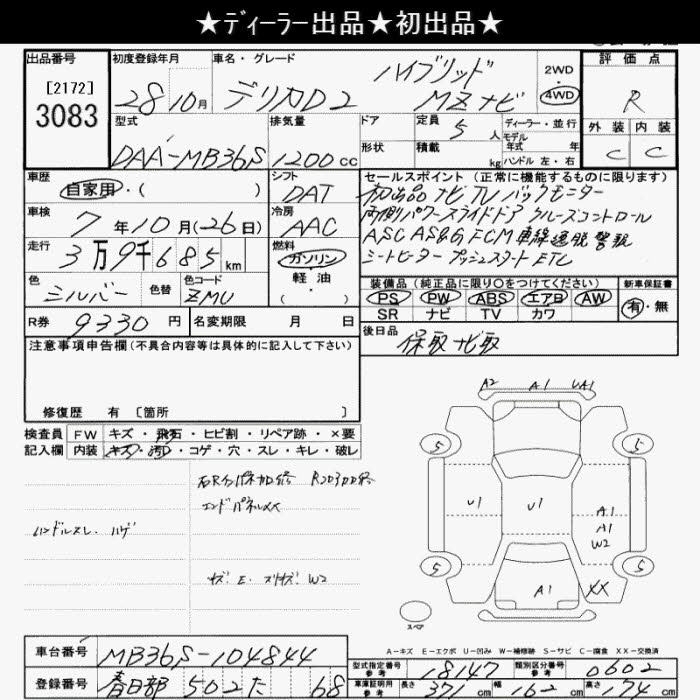 ★ディーラー出品★初出品★
出品番号 初度登録年月 車名・グレード 評価点
[2172]
3083
28年10月 デリカD2 ハイブリッド MZナビ 2WD 4WD R
型式 排気量 ドア 定員 5人 ディーラー・並行 外装 内装
モデル年式 年
DAA-MB36S 1200cc 形状 積載 kg ハンドル 左・右 C C
車歴 シフト セールスポイント (正常に機能するものに限ります)
自家用・( ) DAT 初出品 ナビTV バックモニター
車検 冷房 両側パワースライドドア クルーズコントロール
7年10月(26日) AAC ASC AS&G FCM 車線逸脱警報
走行 燃料 シートヒーター プッシュスタート ETC
3万9千685km ガソリン・軽油・( )
色 色替 色コード 装備品 (純正品に限り○をつけてください) 新車保証書
シルバー ZMU PS PW ABS エアB AW 有・無
SR ナビ TV カワ
R券 9330円 名変期限 月 日 後日品 保取ナビ取
注意事項申告欄(不具合内容等は具体的に記入して下さい)
修復歴 有 〔箇所 〕
検査員 FW キズ・飛石・ヒビ割・リペア跡・×要
記入欄 内装 キズ・汚れ・コゲ・穴・スレ・キレ・破レ
エンドパネルXX
ハンドルスレ、ハゲ
A2 A1 UA1
5 5
U1 U1 A1
A1
W2
5 5
A1 XX
スペア
A-キズ E-エクボ U-凹み W-補修跡 S-サビ C-腐食 XX-交換済
車台番号 MB36S-104844
型式指定番号 参考 18147 類別区分番号 参考 0602
登録番号 春日部 502 た 68
車庫証明用 参考 長さ 371cm 幅 162cm 高さ 174cm